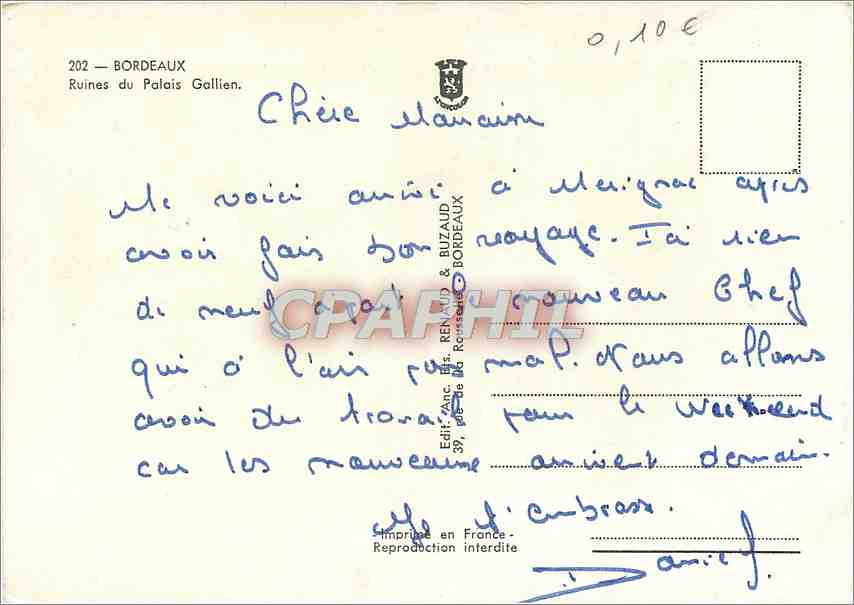 0,10€
202 — BORDEAUX
Ruines du Palais Gallien.
AFONCOLOR
Chère Mamaison
Me voici arrivé à Merignac après
avoir fais bon voyage. Ici rien
de neuf apart le nouveau Chef
qui à l'air pas mal. Nous allons
avoir du travail pour le Week end
car les nouveaux arrivent demain.
Je t'embrasse.
Daniel.
Edit. Anc. Ets. RENAUD & BUZAUD
39, rue de la Rousselle - BORDEAUX
CPAPHIL
-Imprimé en France-
Reproduction interdite